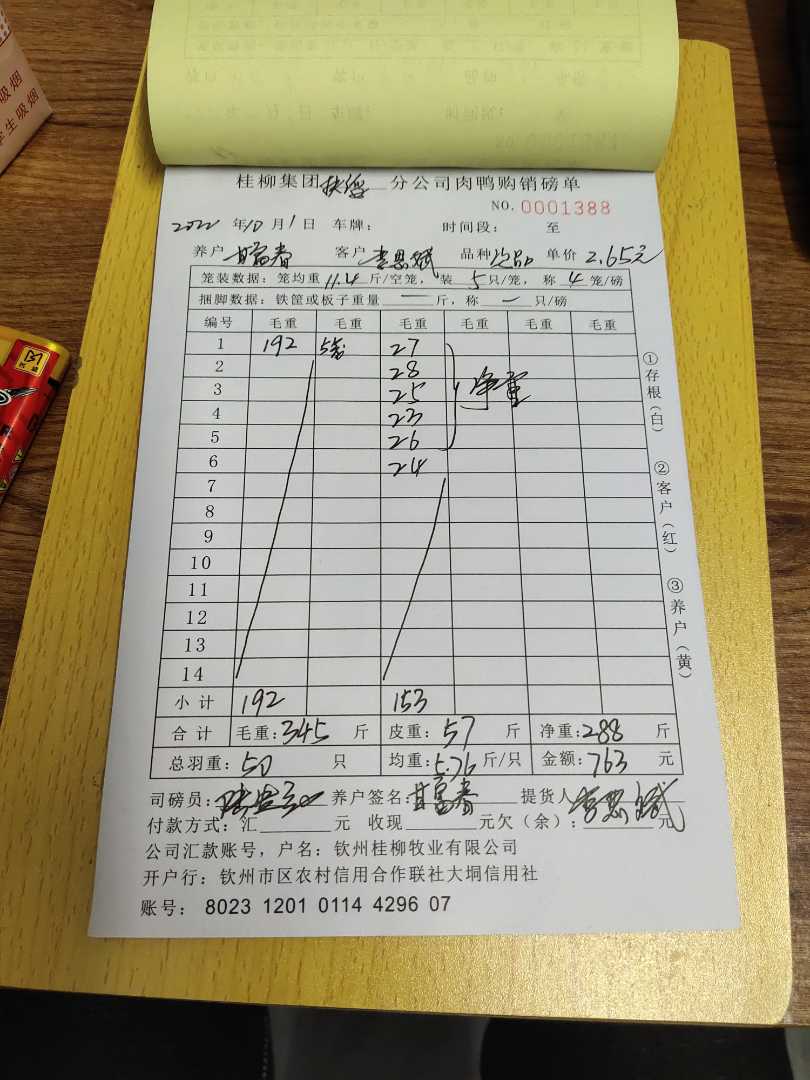 吸烟
学生吸烟
桂柳集团 分公司肉鸭购销磅单
NO. 0001388
2022 年10月1日 车牌： 时间段： 至
养户 甘富春 客户 李思斌 品种 次品 单价 2.65元
笼装数据：笼均重11.4斤/空笼，装5只/笼，称4笼/磅
捆脚数据：铁筐或板子重量 — 斤，称 — 只/磅
编号 毛重 毛重 毛重 毛重 毛重 毛重
1 192 5笼 27
2 28
3 25 净重
4 23
5 26
6 24
7
8
9
10
11
12
13
14
小计 192 153
合计 毛重:345 斤 皮重:57 斤 净重:288 斤
总羽重:50 只 均重:5.76斤/只 金额:763 元
司磅员: 养户签名:甘富春 提货人:李思斌
付款方式：汇 元 收现 元欠（余）: 元
公司汇款账号，户名：钦州桂柳牧业有限公司
开户行：钦州市区农村信用合作联社大垌信用社
账号： 8023 1201 0114 4296 07
①存根（白）
②客户（红）
③养户（黄）